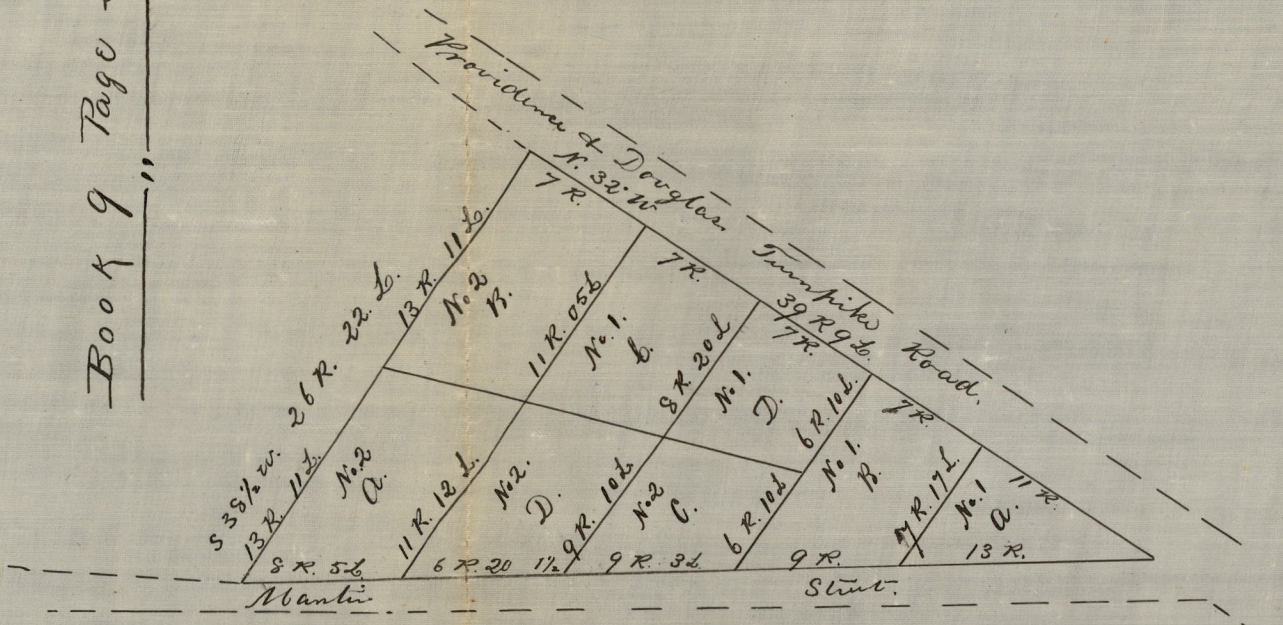 Book 9 " Page
Providence & Douglas Turnpike Road.
N. 32° W
39 R 9 L.
7 R.
7 R.
7 R.
7 R.
11 R
S 38½ W. 26 R. 22. L.
13 R. 11 L.
13 R. 11 L.
No. 2
B.
11 R. 05 L
No. 1.
C.
8 R. 20 L
No. 1.
D.
6 R. 10 L.
No. 1.
B.
7 R. 17 L.
No. 1
A.
No. 2
A.
11 R. 12 L.
No. 2.
D.
9 R. 10 L
No. 2
C.
6 R. 10 L
8 R. 5 L
6 R. 20 1½
9 R. 3 L
9 R.
13 R.
Martin Street.